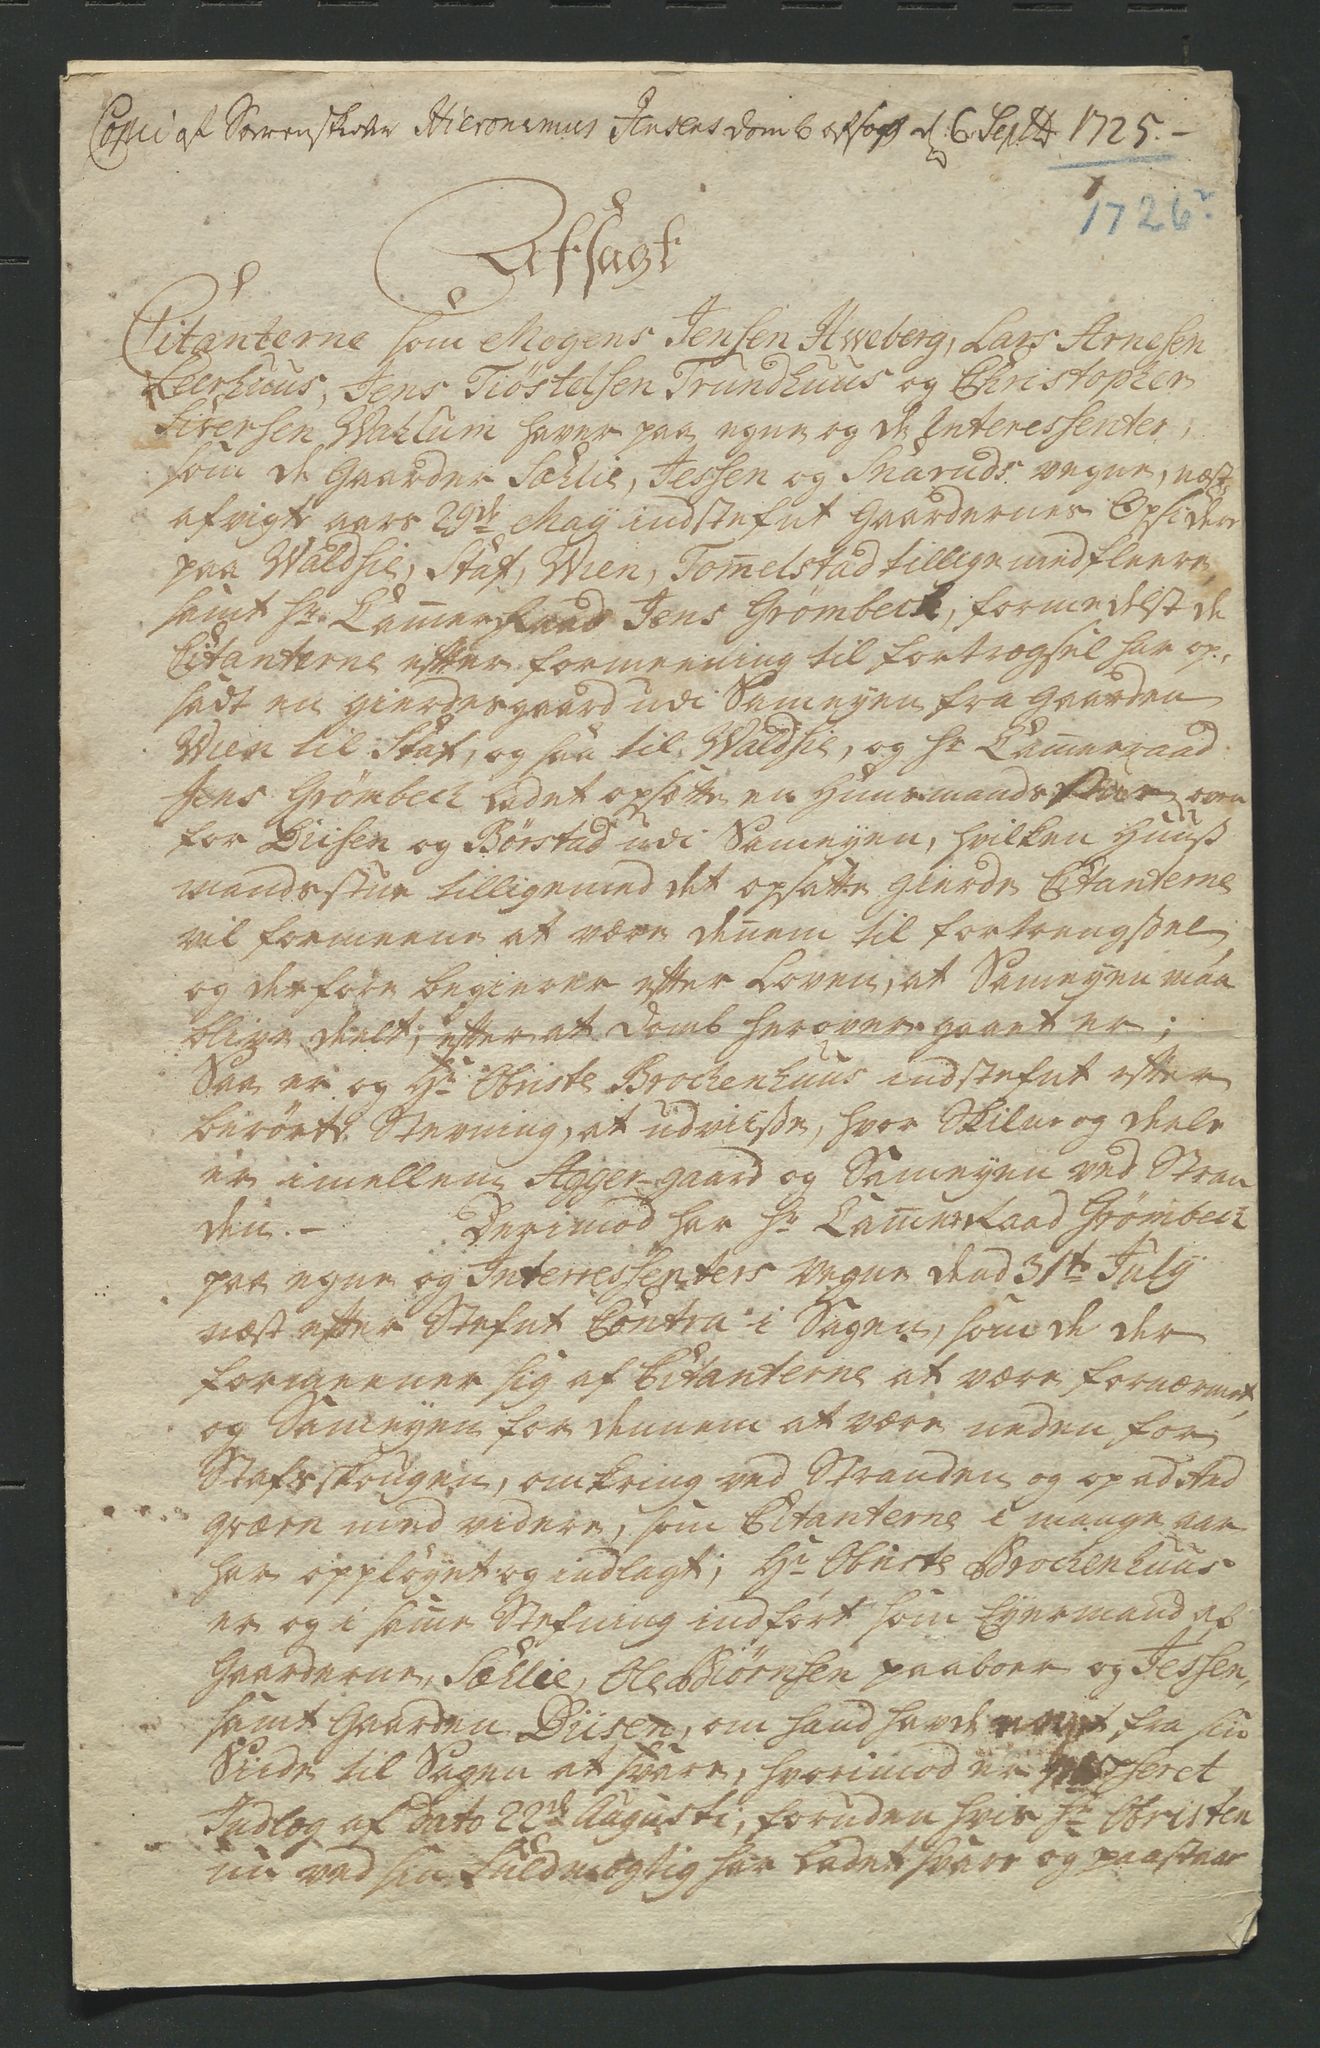 Copii af Sorenskriver Hieronimus Jensens domb afsagt d: 6 Septbr 1725.-
1726
Afsagt
Citanterne som Mogens Jensen Hweberg, Lars Arnesen
Leerhuus, Jens Tiøstelsen Trundhuus og Christopher
Siversen Wahlum haver paa egne og de Interessenter
som de Gaarder Sæhlie, Jessen og Snaruds vegne, næst
afvigte aars 29de Maij indstefnt Gaardernes Opsidere
paa Waldsie, Staf, Wien, Tom̄elstad tillige med fleere,
samt Hr. Cam̄er Raad Jens Grømbech, formedelst de
Citanterne efter formeening til fortrøgsel har op-
sadt en gierdesgaard udi Sameyen fra gaarden
Wien til Staf, og saa til Waldsie, og Hr Cam̄erraad
Jens Grømbech ladet opsætte en Huusmands stue oven
for Diisen og Børstad udi Sameyen, hvilken Huuß
mandsstue tilligemed det opsatte gierde Citanterne
vil formeene at være den̄em til fortrengßel
og derfore begierer efter Loven, at Sameyen maa
blive deelt; efter at domb herover gaaet er;
Saa er og Hr Obriste Brochenhuus indstefnt efter
berørte Stevning, at udviiße, hvor Skilne og deele
er imellem Agger-gaard og Sameyen ved Stran
den. - Derimod har Hr Cam̄erRaad Grømbech
paa egne og Interressenters vegne dend 31te July
næst efter Stefnt Contra i Sagen, som de der
formeener sig af Citanterne at være fornærmet,
og Sameyen for dennem at være neden for
Stafsskougen, omkring ved Stranden og op ad Aad
qværn med videre, som Citanterne i mange aar
har oppløyet og indlagt; Hr Obriste Brochenhuus
er og i sam̄e Stefning indført som Eyermand af
Gaarderne, Sæhlie, Ole Biørnsen paaboer og Jessen,
samt Gaarden Diisen, om hand havde noget fra sin
Siide til Sagen at svare, hvorimod er
Indlæg af Dato 22de Augusti, foruden hvis Hr Obristen
nu ved sin Fuldmægtig har ladet svare og paastaae